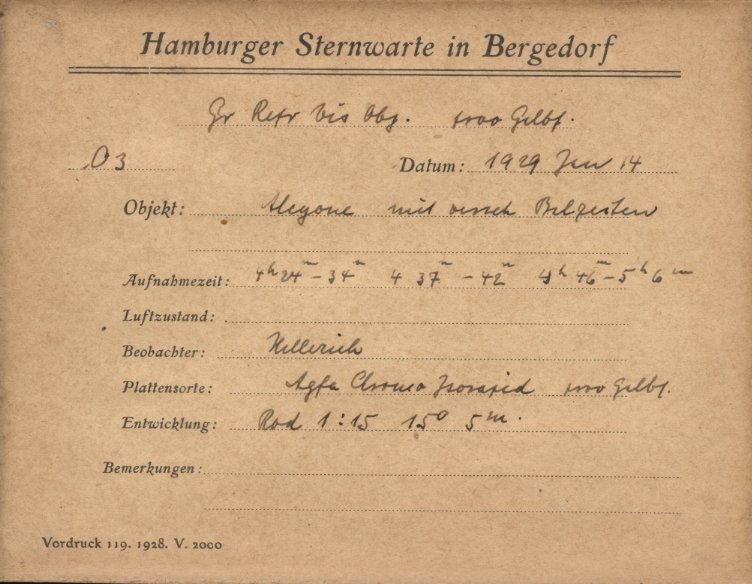 Hamburger Sternwarte in Bergedorf
Gr Refr vis Obj. Gelbf.
O3 Datum: 1929 Jan 14
Objekt: Alcyone mit versch Belzeiten
Aufnahmezeit: 4h 24m – 34m 4 37m – 42m 4h 46m – 5h 6m
Luftzustand:
Beobachter: Hellerich
Plattensorte: Agfa Chromo Isorapid Gelbf.
Entwicklung: Rod 1:15 15° 5m.
Bemerkungen:
Vordruck 119. 1928. V. 2000